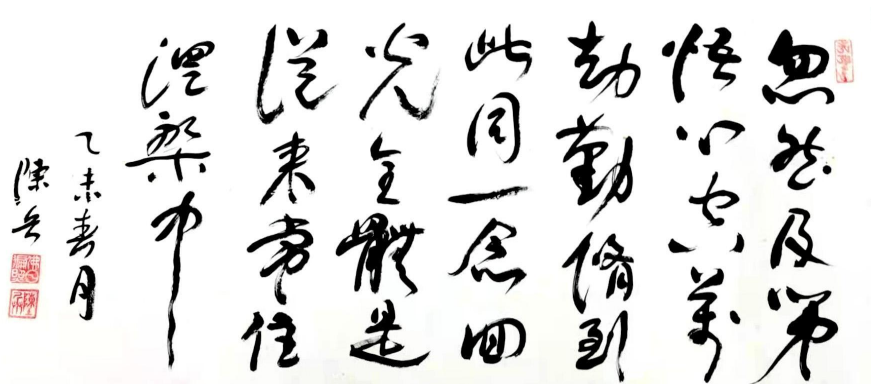 忽然及第
悟心空萬
劫勤脩到
此同一念回
光全體是
從来常住
涅槃中
乙未春月
陳兵